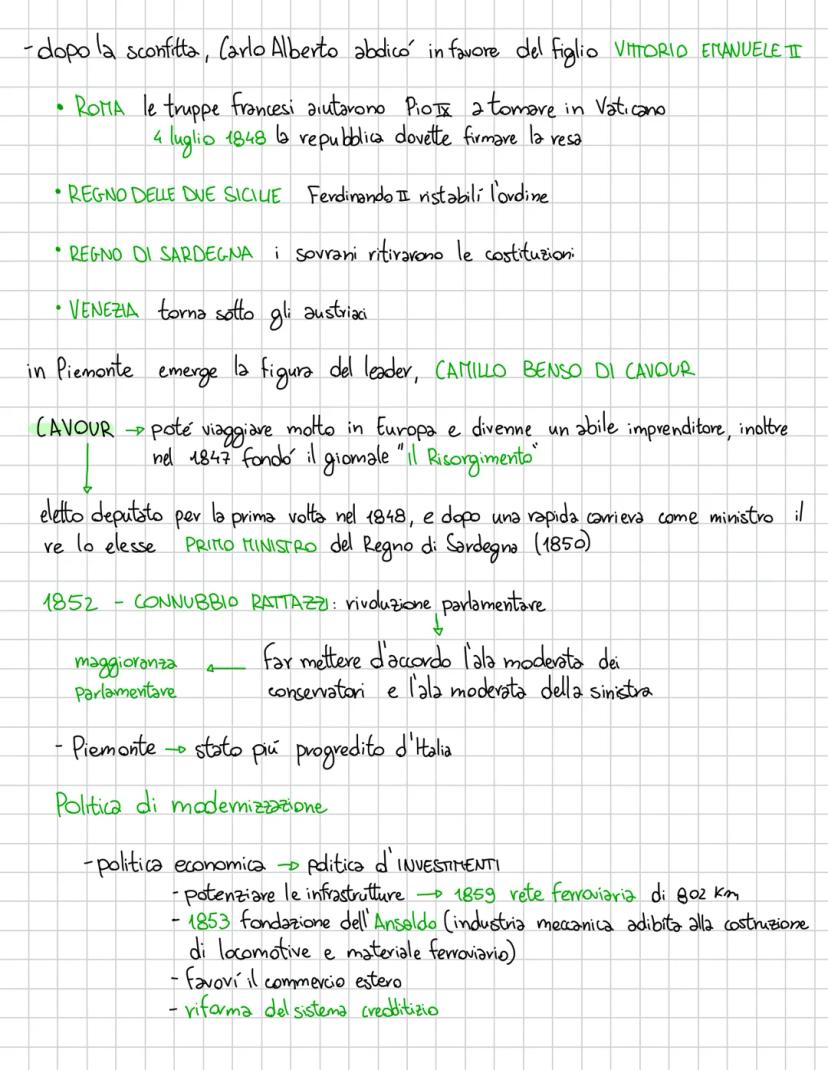 - dopo la sconfitta, Carlo Alberto abdicó in favore del figlio VITTORIO EMANUELE II
• ROMA le truppe francesi aiutarono Pio IX a tornare in Vaticano
4 luglio 1848 la repubblica dovette firmare la resa
• REGNO DELLE DUE SICILIE Ferdinando II ristabilí l'ordine
• REGNO DI SARDEGNA i sovrani ritirarono le costituzioni
• VENEZIA torna sotto gli austriaci
in Piemonte emerge la figura del leader, CAMILLO BENSO DI CAVOUR
CAVOUR → poté viaggiare molto in Europa e divenne un abile imprenditore, inoltre
nel 1847 fondó il giornale "il Risorgimento"
eletto deputato per la prima volta nel 1848, e dopo una rapida carriera come ministro il
re lo elesse PRIMO MINISTRO del Regno di Sardegna (1850)
1852 - CONNUBBIO RATTAZZI: rivoluzione parlamentare
maggioranza ← far mettere d'accordo l'ala moderata dei
parlamentare conservatori e l'ala moderata della sinistra
- Piemonte → stato piú progredito d'Italia
Politica di modernizzazione
- politica economica → politica d'INVESTIMENTI
- potenziare le infrastrutture → 1859 rete ferroviaria di 802 Km
- 1853 fondazione dell'Ansaldo (industria meccanica adibita alla costruzione
di locomotive e materiale ferroviario)
- favorí il commercio estero
- riforma del sistema credditizio